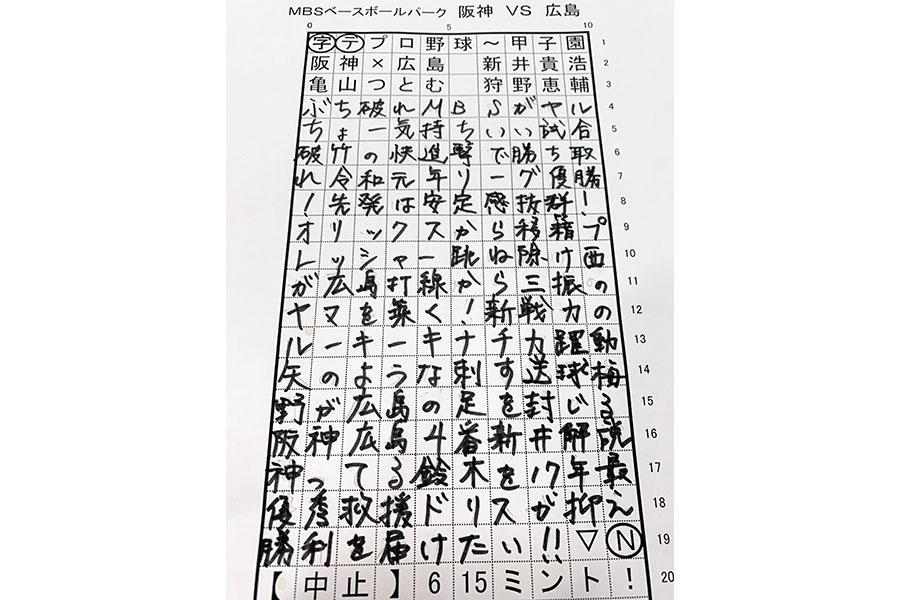 MBSベースボールパーク 阪神 VS 広島
0 5 10
字デプロ野球～甲子園 1
阪神×広島 新井貴浩 2
亀山つとむ 狩野恵輔 3
ぶち破れMBSがヤル 4
ちょー気持ちいい試合 5
破竹の快進撃で勝ち取 6
れ令和元年リーグ優勝 7
!先発は安定感抜群! 8
オリックスから移籍プ 9
レッシャー跳ねら除け西 10
が広島打線から三振の 11
ヤマを築く!新戦力の 12
ルーキーキナチカ躍動 13
矢のような刺す送球梅 14
野が広島の足を封じる 15
阪神広島4番新井解説 16
神ってる鈴木を17年最 17
優秀救援ドリスが抑え 18
勝利を届けたい!!▽N 19
【中止】615ミント! 20